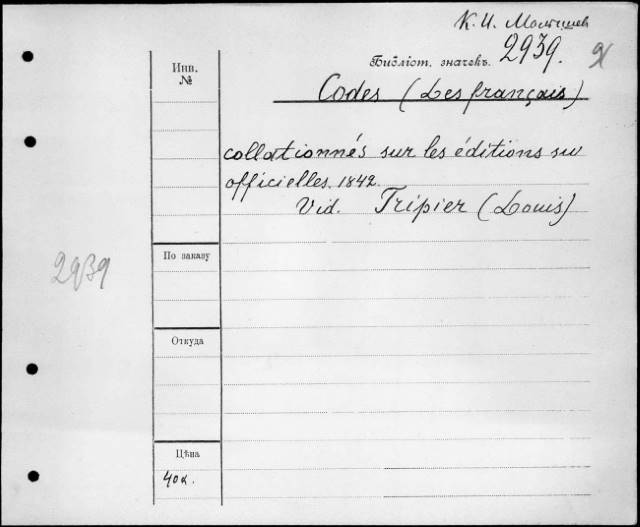 К. И. Малышев
Инв.
№
Библіот. значекъ. 2939.
Codes (Les français)
collationnés sur les éditions
officielles. 1842.
Vid. Tripier (Louis)
2939
По заказу
Откуда
Цѣна
40к.